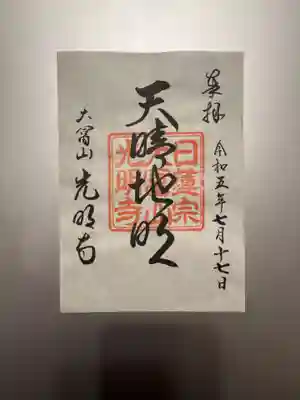 奉拝
令和五年七月十七日
天晴地明
山 光明寺
日蓮宗
光明寺